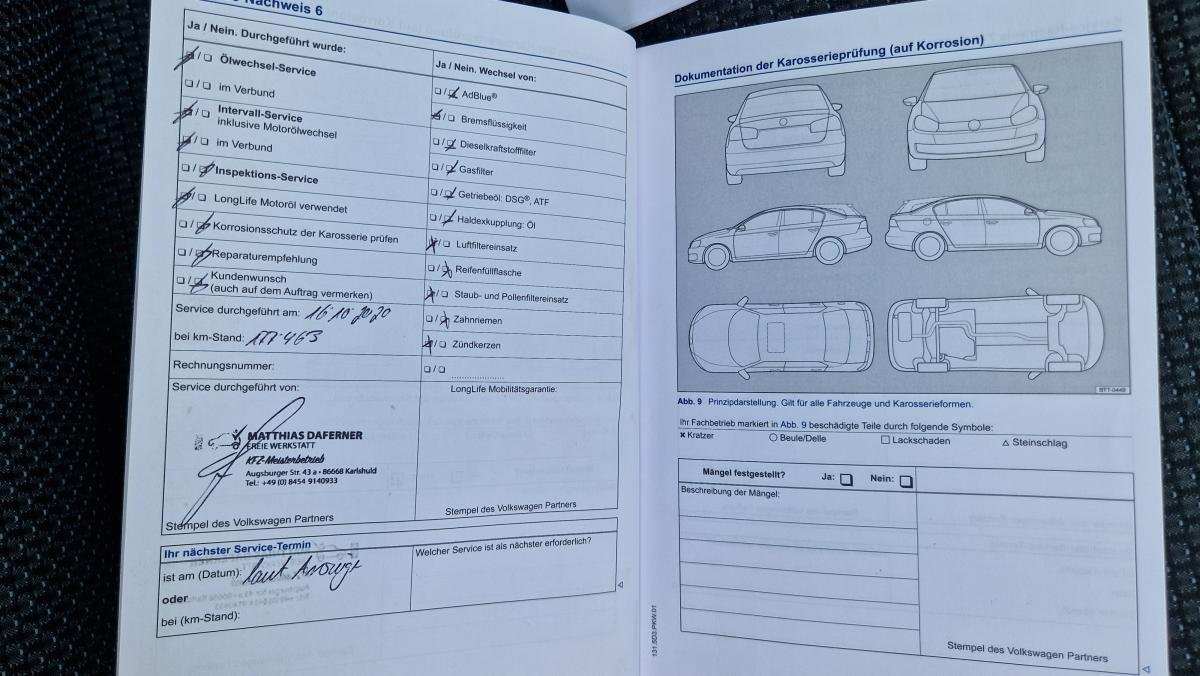 Nachweis 6
Ja / Nein. Durchgeführt wurde:
Ölwechsel-Service
im Verbund
Intervall-Service
inklusive Motorölwechsel
im Verbund
Inspektions-Service
LongLife Motoröl verwendet
Korrosionsschutz der Karosserie prüfen
Reparaturempfehlung
Kundenwunsch
(auch auf dem Auftrag vermerken)
Service durchgeführt am: 16.10.2020
bei km-Stand:
Rechnungsnummer:
Service durchgeführt von:
MATTHIAS DAFERNER
FREIE WERKSTATT
KFZ-Meisterbetrieb
Augsburger Str. 43 a • 86668 Karlshuld
Tel.: +49 (0) 8454 9140933
Stempel des Volkswagen Partners
Ja / Nein. Wechsel von:
AdBlue®
Bremsflüssigkeit
Dieselkraftstofffilter
Gasfilter
Getriebeöl: DSG®, ATF
Haldexkupplung: Öl
Luftfiltereinsatz
Reifenfüllflasche
Staub- und Pollenfiltereinsatz
Zahnriemen
Zündkerzen
LongLife Mobilitätsgarantie:
Stempel des Volkswagen Partners
Ihr nächster Service-Termin
ist am (Datum): laut Anzeige
oder
bei (km-Stand):
Welcher Service ist als nächster erforderlich?
Dokumentation der Karosserieprüfung (auf Korrosion)
BTT-0449
Abb. 9 Prinzipdarstellung. Gilt für alle Fahrzeuge und Karosserieformen.
Ihr Fachbetrieb markiert in Abb. 9 beschädigte Teile durch folgende Symbole:
Kratzer Beule/Delle Lackschaden Steinschlag
Mängel festgestellt? Ja: Nein:
Beschreibung der Mängel:
Stempel des Volkswagen Partners
131.5D3.PKW.01